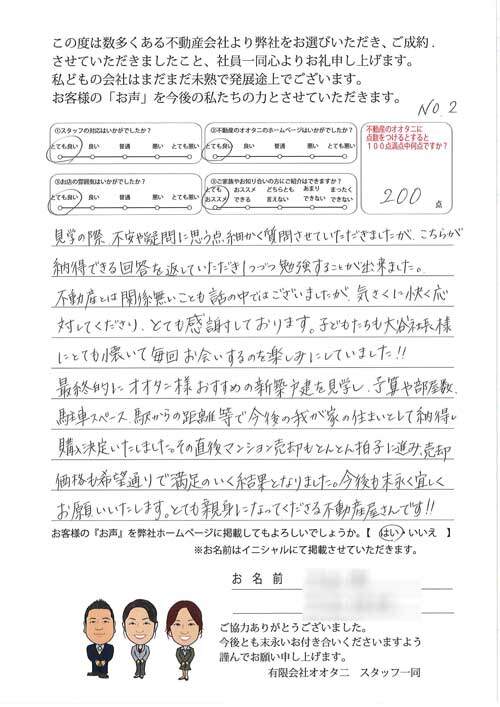 この度は数多くある不動産会社より弊社をお選びいただき、ご成約.
させていただきましたこと、社員一同心よりお礼申し上げます。
私どもの会社はまだまだ未熟で発展途上でございます。
お客様の「お声」を今後の私たちの力とさせていただきます。
NO.2
①スタッフの対応はいかがでしたか?
とても良い 良い 普通 悪い とても悪い
②不動産のオオタニのホームページはいかがでしたか?
とても良い 良い 普通 悪い とても悪い
③お店の雰囲気はいかがでしたか?
とても良い 良い 普通 悪い とても悪い
③ご家族やお知り合いの方にご紹介はできますか?
とてもおススメ おススメできる どちらとも言えない あまりできない まったくできない
不動産のオオタニに
点数をつけるとすると
100点満点中何点ですか?
200 点
見学の際、不安や疑問に思う点、細かく質問させていただきましたが、こちらが
納得できる回答を返していただき1つづつ勉強することが出来ました。
不動産とは関係無いことも話の中ではございましたが、気さくに快く応
対してくださり、とても感謝しております。子どもたちも大谷社長様
にとても懐いて毎回お会いするのを楽しみにしていました!!
最終的にオオタニ様おすすめの新築戸建を見学し、予算や部屋数、
駐車スペース、駅からの距離等で今後の我が家の住まいとして納得し
購入決定いたしました。その直後マンション売却もとんとん拍子に進み、売却
価格も希望通りで満足のいく結果となりました。今後も末永く宜しく
お願いいたします。とても親身になってくださる不動産屋さんです!!
お客様の『お声』を弊社ホームページに掲載してもよろしいでしょうか。【 はい・いいえ 】
※お名前はイニシャルにて掲載させていただきます。
お 名 前
ご協力ありがとうございました。
今後とも末永いお付き合いくださいますよう
謹んでお願い申し上げます。
有限会社オオタニ スタッフ一同